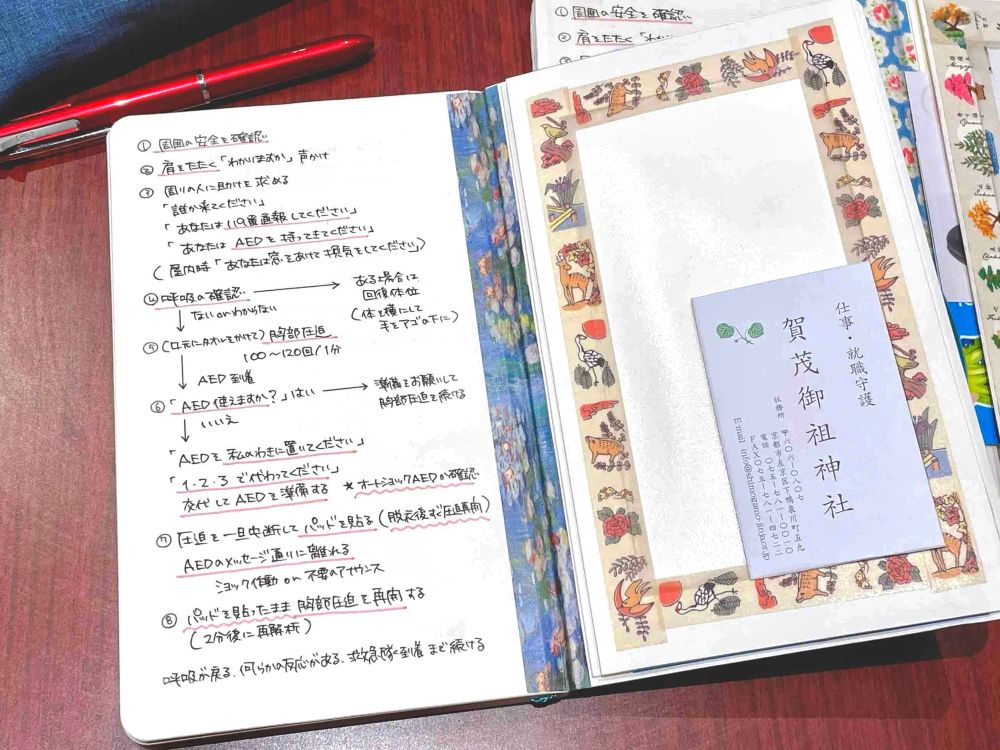 ① 周囲の安全を確認
② 肩をたたく「わかりますか」声かけ
③ 周りの人に助けを求める
「誰か来てください」
「あなたは119番通報してください」
「あなたは AEDを持ってきてください」
(屋内時「あなたは窓をあけて換気をしてください」)
④ 呼吸の確認 → ある場合は
回復体位
(体を横にして
手をアゴの下に)
↓ ない or わからない
⑤ (口元にタオルをかけて) 胸部圧迫
100〜120回/1分
↓ AED到着
⑥ 「AED使えますか?」はい → 準備をお願いして
胸部圧迫を続ける
↓ いいえ
「AEDを私のわきに置いてください」
「1・2・3で代わってください」
交代してAEDを準備する ★オートショックAEDか確認
⑦ 圧迫を一旦中断してパッドを貼る (脱衣後すぐ圧迫再開)
AEDのメッセージ通りに離れる
ショック作動 or 不要のアナウンス
⑧ パッドを貼ったまま 胸部圧迫を再開する
(2分後に再解析)
呼吸が戻る、何らかの反応がある、救急隊到着まで続ける
① 周囲の安全を確認
② 肩をたたく「わかり
仕事・就職守護
賀茂御祖神社
社務所
〒六〇六―〇八〇七
京都市左京区下鴨泉川町五九
電話 〇七五―七八一―〇〇一〇
FAX〇七五―七八一―四七二二
E-mail info@shimogamo-jinja.or.jp